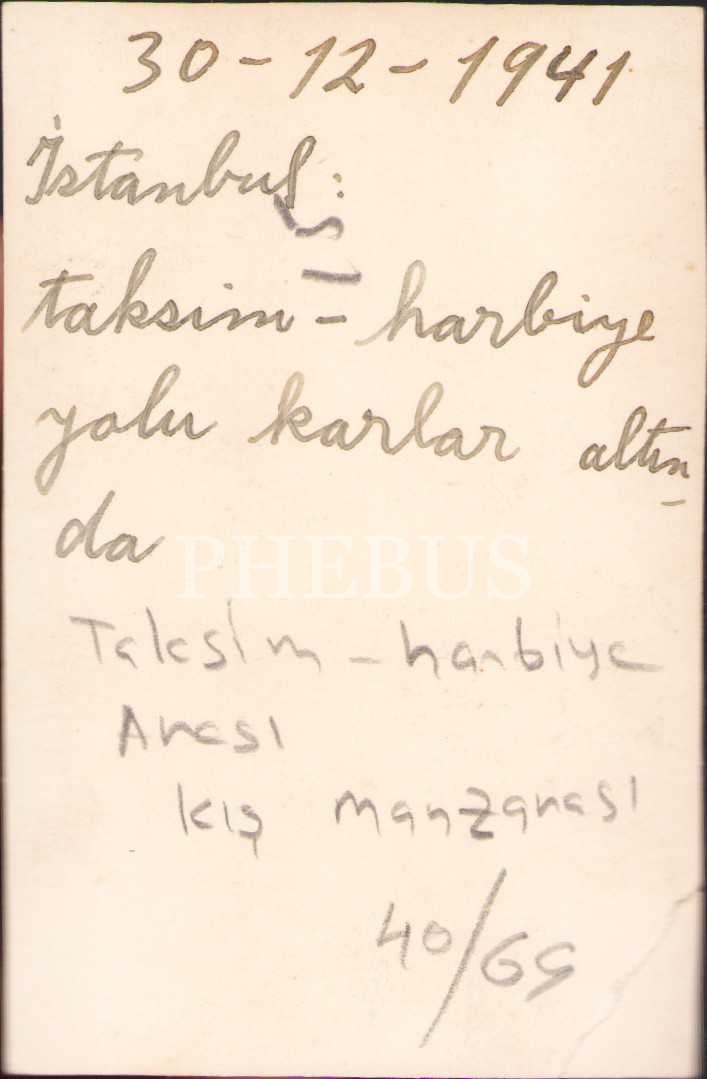 30-12-1941
İstanbul:
taksim - harbiye
yolu karlar altın
da
PHEBUS
Taksim - harbiye
Arası
kış manzarası